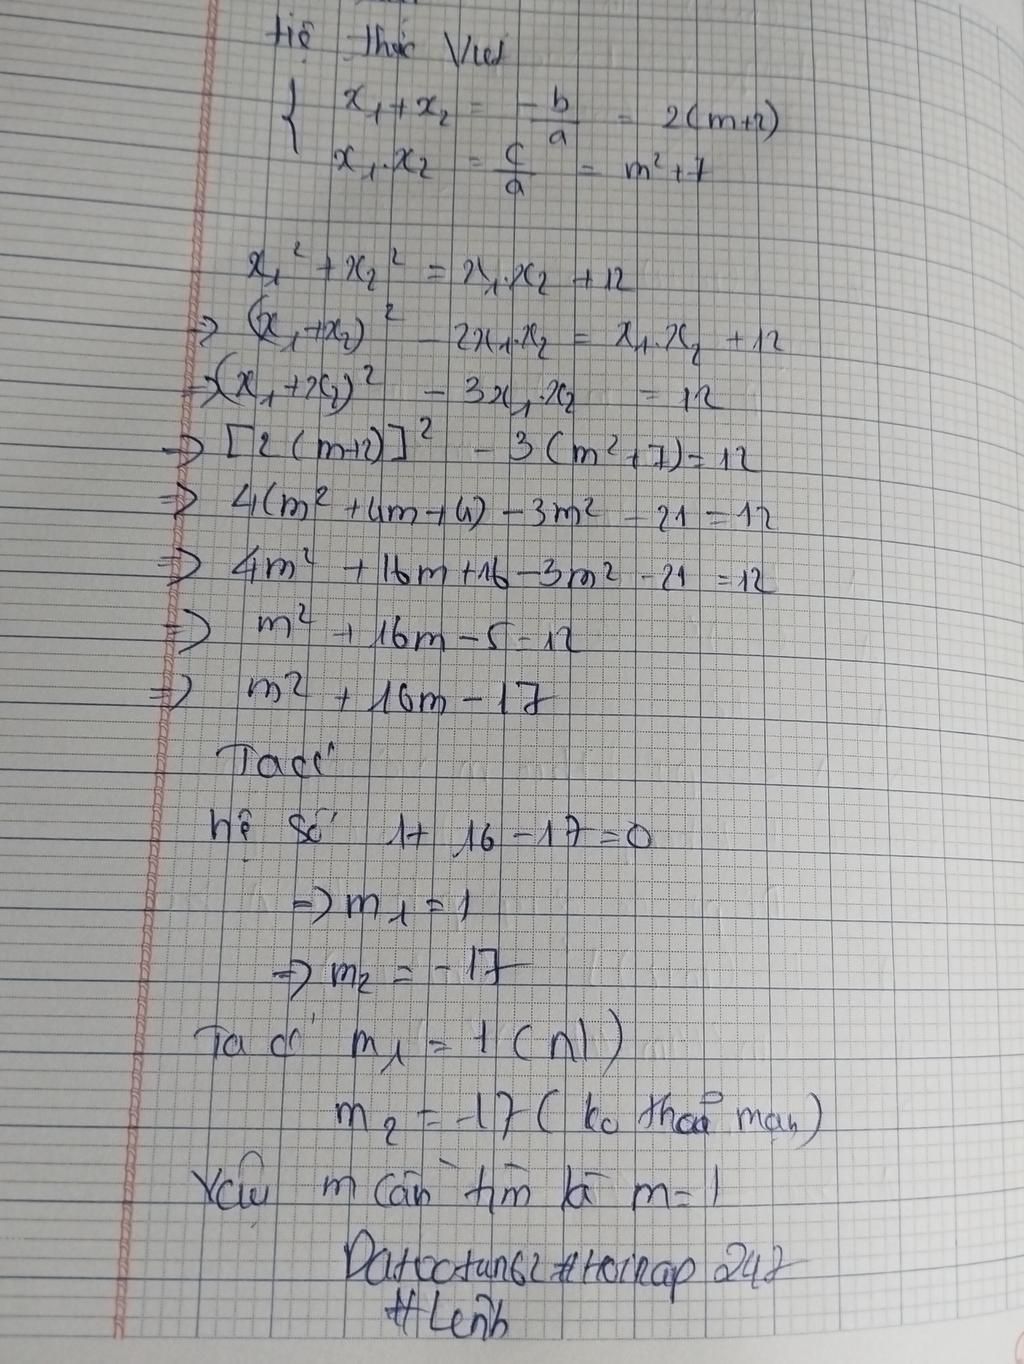 Hệ thức Viet
{ x₁+x₂ = -b/a = 2(m+2)
x₁.x₂ = c/a = m²+7
x₁² + x₂² = x₁.x₂ + 12
=> (x₁+x₂)² - 2x₁.x₂ = x₁.x₂ + 12
=> (x₁+x₂)² - 3x₁.x₂ = 12
=> [2(m+2)]² - 3(m²+7) = 12
=> 4(m²+4m+4) - 3m² - 21 = 12
=> 4m² + 16m + 16 - 3m² - 21 = 12
=> m² + 16m - 5 = 12
=> m² + 16m - 17
Ta có
hệ số 1 + 16 - 17 = 0
=> m₁ = 1
=> m₂ = -17
Ta có m₁ = 1 (nl)
m₂ = -17 (ko thoả mạn)
Vậy m cần tìm là m = 1
#Hoidap 247